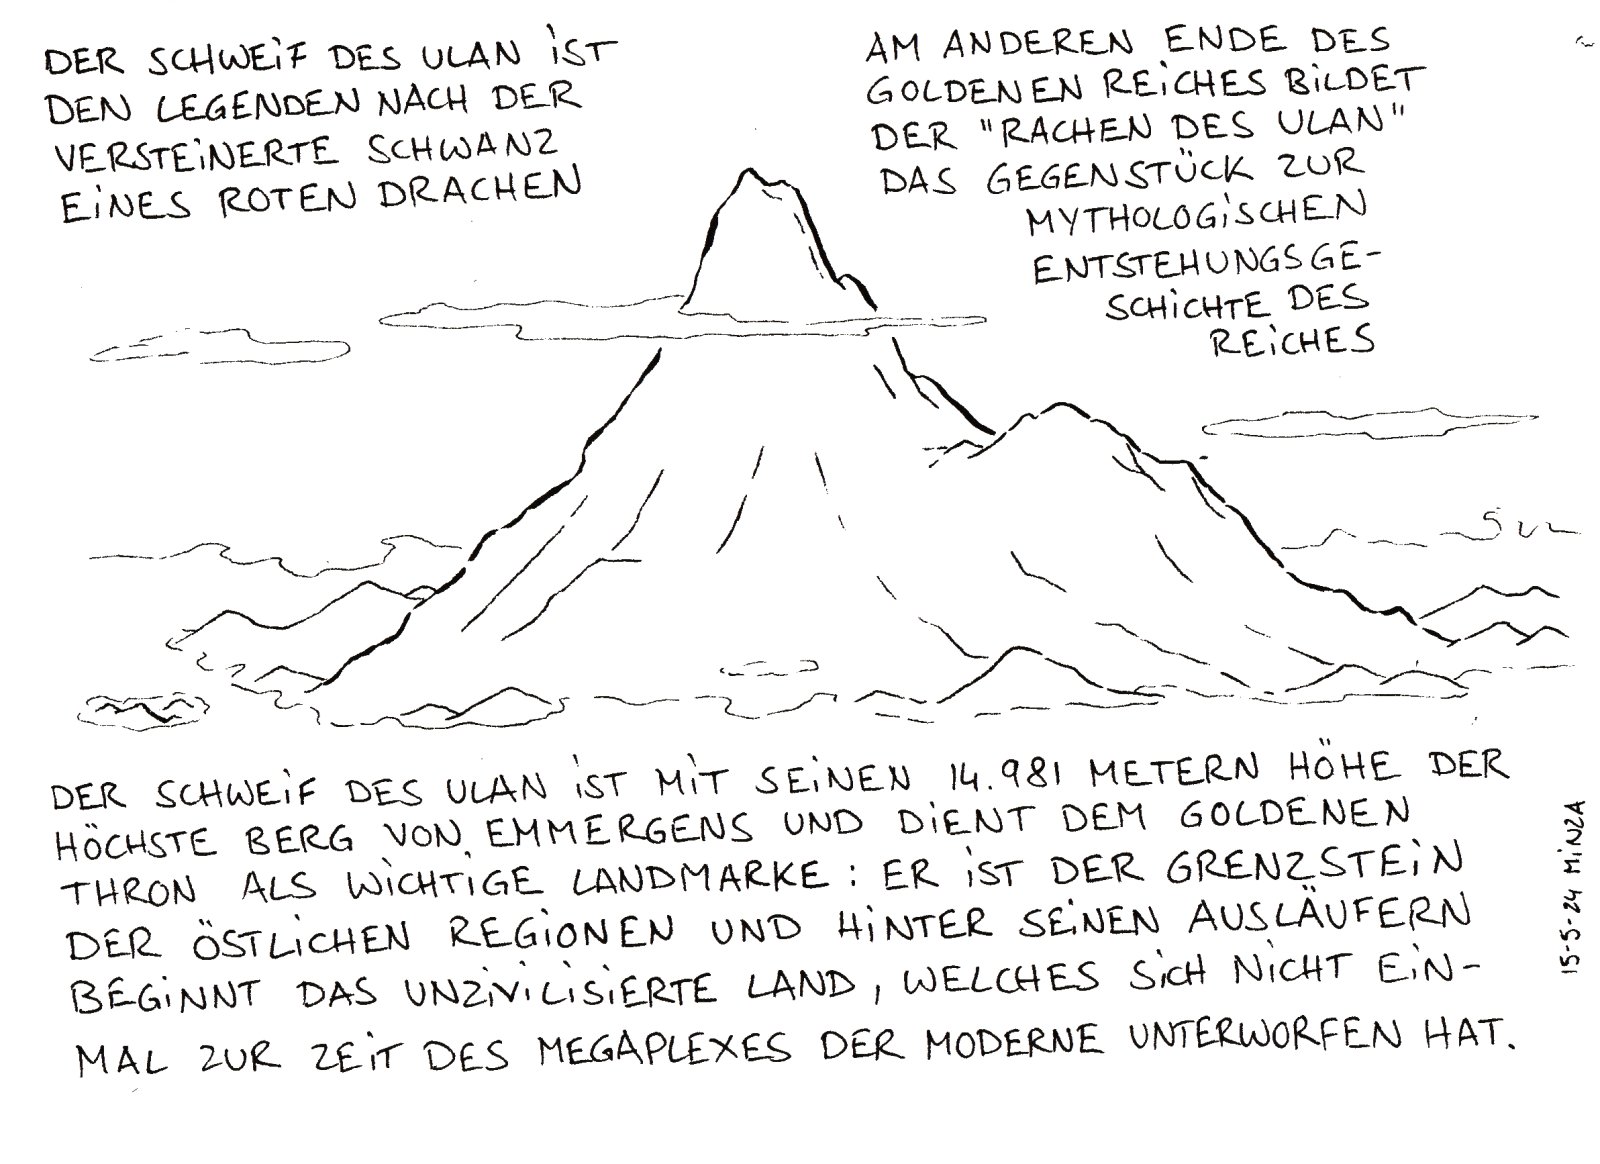 DER SCHWEIF DES ULAN IST
DEN LEGENDEN NACH DER
VERSTEINERTE SCHWANZ
EINES ROTEN DRACHEN
AM ANDEREN ENDE DES
GOLDENEN REICHES BILDET
DER "RACHEN DES ULAN"
DAS GEGENSTÜCK ZUR
MYTHOLOGISCHEN
ENTSTEHUNGSGE-
SCHICHTE DES
REICHES
DER SCHWEIF DES ULAN IST MIT SEINEN 14.981 METERN HÖHE DER
HÖCHSTE BERG VON EMMERGENS UND DIENT DEM GOLDENEN
THRON ALS WICHTIGE LANDMARKE: ER IST DER GRENZSTEIN
DER ÖSTLICHEN REGIONEN UND HINTER SEINEN AUSLÄUFERN
BEGINNT DAS UNZIVILISIERTE LAND, WELCHES SICH NICHT EIN-
MAL ZUR ZEIT DES MEGAPLEXES DER MODERNE UNTERWORFEN HAT.
15-5-24 MINZA